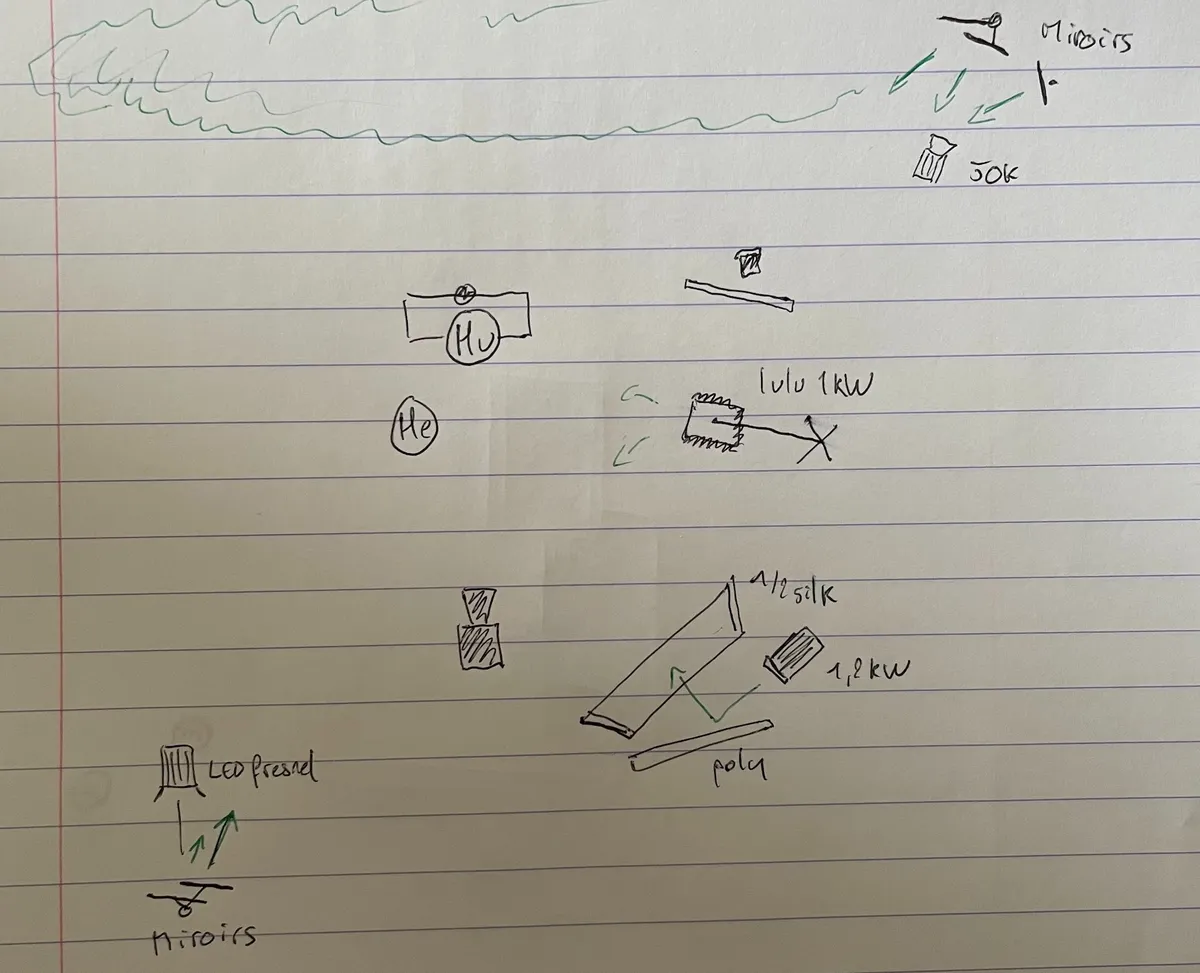 Miroirs
50K
Hu
lulu 1kW
He
1/2 silk
1,2kW
poly
LED fresnel
Miroirs